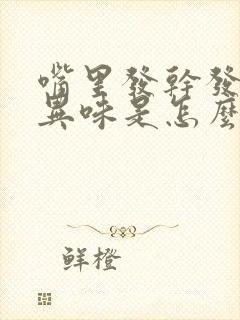 嘴里發幹發
異味是怎麽
鲜橙